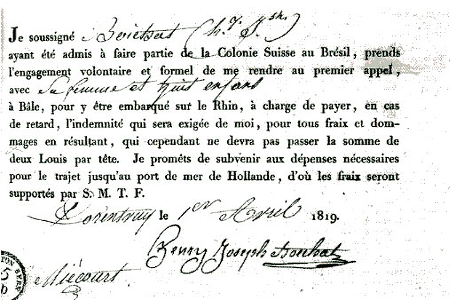 Je soussigné Boéchat (h.i J.sh)
ayant été admis à faire partie de la Colonie Suisse au Brésil, prends
l'engagement volontaire et formel de me rendre au premier appel,
avec sa femme et huit enfans
à Bâle, pour y être embarqué sur le Rhin, à charge de payer, en cas
de retard, l'indemnité qui sera exigée de moi, pour tous fraix et dom-
mages en résultant, qui cependant ne devra pas passer la somme de
deux Louis par tête. Je promêts de subvenir aux dépenses nécessaires
pour le trajet jusqu'au port de mer de Hollande, d'où les fraix seront
supportés par S. M. T. F.
Porentruy le 1er Avril 1819.
Henry Joseph Bouhat
Miécourt